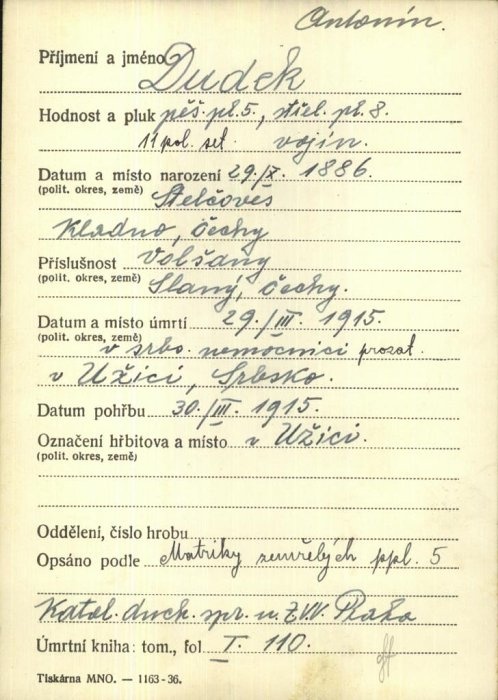 Antonín.
Příjmení a jméno Dudek
Hodnost a pluk pěš. pl. 5., střel. pl. 8.
11 pol. set. vojín.
Datum a místo narození 29./X. 1886.
(polit. okres, země) Stelčoves
Kladno, Čechy
Příslušnost Volšany
(polit. okres, země) Slaný, Čechy.
Datum a místo úmrtí 29./III. 1915.
(polit. okres, země)
v srbo. nemocnici prozat.
v Užici, Srbsko.
Datum pohřbu 30./III. 1915.
Označení hřbitova a místo v Užici.
(polit. okres, země)
Oddělení, číslo hrobu
Opsáno podle Matriky zemřelých ppl. 5
Katol. duch. spr. u ZVV. Praha
Úmrtní kniha: tom., fol I. 110.
Tiskárna MNO. — 1163-36.